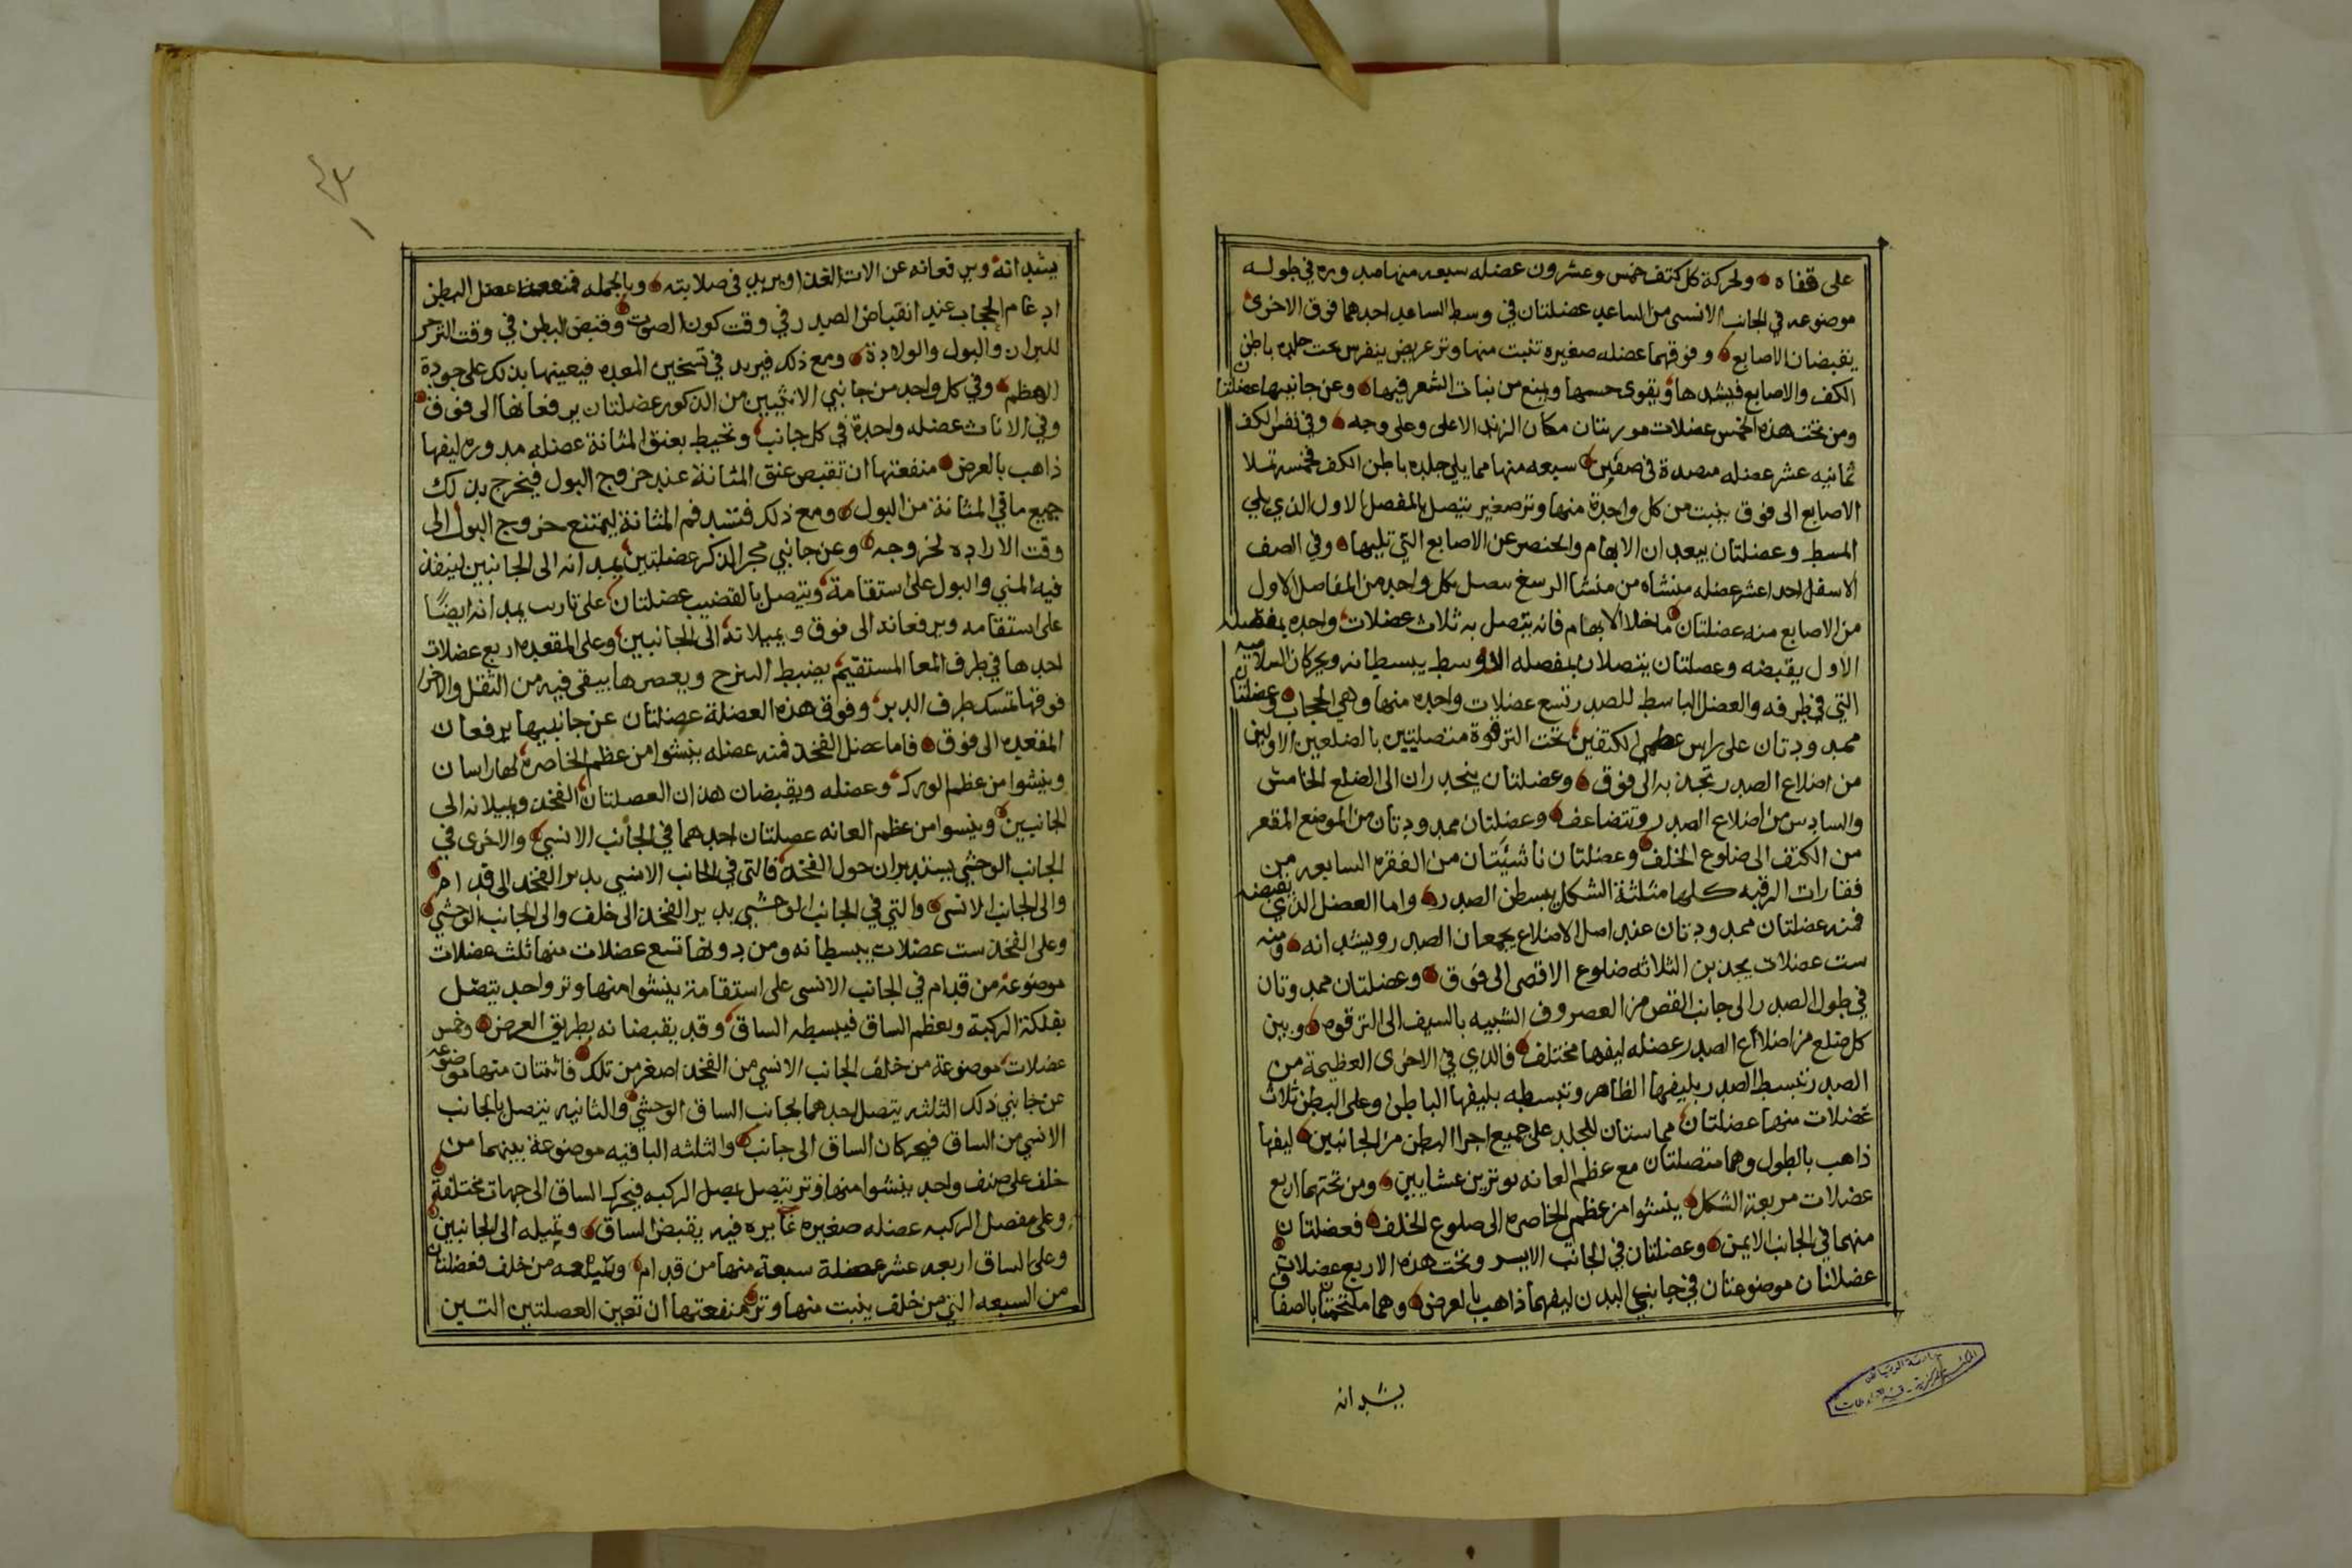 على قفاه ولحركة كل كتف خمس وعشرون عضله سبعه منها مدوره في طوله
موضوعه في الجانب الانسى من الساعد عضلتان في وسط الساعد احدهما فوق الاخرى
يقبضان الاصابع وفوقهما عضله صغيره تنبت منها وتر عريض ينفرس تحت جلده باطن
الكف والاصابع فيشدها ويقوى حسها ويمنع من نبات الشعر فيها وعن جانبيها عضلتان
ومن تحت هذه الخمس عضلات موربتان مكان الزند الاعلى وعلى وجه وفي نفس الكف
ثمانيه عشر عضله منضدة في صفين سبعه منها مما يلي جلده باطن الكف فخمسة تملا
الاصابع الى فوق ينبت من كل واحدة منها وتر صغير يتصل بالمفصل الاول الذي يلي
المسط وعضلتان يبعدان الابهام والخنصر عن الاصابع التي تليها وفي الصف
الاسفل احد اعشر عضله منشاه من منشا الرسغ يتصل بكل واحد من المفاصل الاول
من الاصابع منه عضلتان ماخلا الابهام فانه يتصل به ثلاث عضلات واحده بمفصله
الاول يقبضه وعصلتان يتصلان بمفصله الاوسط يبسطانه ويحركان السلاميه
التي في طرفه والعضل الباسط للصدر تسع عضلات واحده منها وهي الحجاب وعضلتان
ممدودتان على راس عظمى الكتفين تحت الترقوة متصليتين بالضلعين الاولين
من اضلاع الصدر تجذبه الى فوق وعضلتان ينحدران الى الضلع الخامس
والسادس من اضلاع الصدر وتتضاعف وعضلتان ممدودتان من الموضع المقعر
من الكتف الى ضلوع الخلف وعضلتان ناشئيتان من الفقره السابعه من
فقارات الرقبه كلها مثلثة الشكل يبسطن الصدر واما العضل الذي يقبضه
فمنه عضلتان ممدودتان عند اصل الاضلاع يجمعان الصدر ويشدانه ومنه
ست عضلات يجذبن الثلاثه ضلوع الاقصى الى فوق وعضلتان ممدوتان
في طول الصدر الى جانب القص من العصروف الشبيه بالسيف الى الترقوه وبين
كل ضلع من اضلاع الصدر عضله ليفها مختلف فالذي في الاخرى العظيمة من
الصدر تبسط الصدر بليفها الظاهر وتبسطه بليفها الباطن وعلى البطن ثلاث
عضلات منها عضلتان مماستان للجلد على جميع اجزا البطن من الجانبين ليفها
ذاهب بالطول وهما متصلتان مع عظم العانه بوترين عشايين ومن تحتهما اربع
عضلات مربعة الشكل ينشوا من عظم الخاصره الى ضلوع الخلف فعضلتان
منهما في الجانب الايمن وعضلتان في الجانب الايسر وتحت هذه الاربع عضلات
عضلاتان موضوعتان في جانبي البدن ليفهما ذاهب بالعرض وهما ملتحمتان بالصفاق
يشدانه
يشدانه ويرفعانه عن الات الغذا ويزيد في صلابته وبالجمله فمنفعة عضل البطن
ادغام الحجاب عند انقباض الصدر في وقت كون الصوت وقبض البطن في وقت التزحر
للبراز والبول والولادة ومع ذلك فيزيد في تسخين المعده فيعينها بذلك على جودة
الهظم وفي كل واحد من جانبي الانثيين من الذكور عضلتان يرفعانها الى فوق
وفي الاناث عضله واحدة في كل جانب وتحيط بعنق المثانة عضله مدوره ليفها
ذاهب بالعرض منفعتها ان تقبض عنق المثانة عند خروج البول فيخرج بذلك
جميع ما في المثانة من البول ومع ذلك فتشد فم المثانة ليمتنع خروج البول الى
وقت الاراده لخروجه وعن جانبي مجر الذكر عضلتين يمدانه الى الجانبين لينفذ
فيه المني والبول على استقامة ويتصل بالقضيب عضلتان على تاريب يمدانه ايضًا
على استقامه ويرفعانه الى فوق ويميلانه الى الجانبين وعلى المقعده اربع عضلات
احدها في طرف المعا المستقيم يضبط السرج ويعصرها يبقى فيه من الثقل والاخرا
فوقها تمسك طرف الدبر وفوق هذه العضلة عضلتان عن جانبيها يرفعان
المقعده الى فوق فاما عضل الفخذ فمنه عضله ينشوا من عظم الخاصره لها راسان
وينشوا من عظم الورك وعضله ويقبضان هذان العصلتان الفخذ ويميلانه الى
الجانبين وينسوا من عظم العانه عصلتان احدهما في الجانب الانسي والاخرى في
الجانب الوحشي يستديران حول الفخذ فالتي في الجانب الانسي يدير الفخذ الى قدام
والى الجانب الانسى والتي في الجانب الوحشي يدير الفخذ الى خلف والى الجانب الوحشي
وعلى الفخذ ست عضلات يبسطانه ومن دونها تسع عضلات منها ثلث عضلات
موضوعة من قدام في الجانب الانسى على استقامة ينشوا منها وتر واحد يتصل
بفلكة الركبة وبعظم الساق فيبسطه الساق وقد يقبضانه بطريق العرض وخمس
عضلات موضوعة من خلف الجانب الانسي من الفخذ اصغر من تلك فاثنتان منها موضوعه
عن جانبي ذلك الثلثه يتصل احدهما بجانب الساق الوحشي والثانيه يتصل بالجانب
الانسي من الساق فيحركان الساق الى جانب والثلثه الباقيه موضوعة بينهما من
خلف على صنف واحد ينشوا منها وتر يتصل بعصل الركبه فيحرك الساق الى جهات مختلفة
وعلى مفصل الركبه عضله صغيره غايره فيه يقبض الساق وتميله الى الجانبين
وعلى الساق اربعه عشر عضلة سبعة منها من قدام وسبعه من خلف فعضلتان
من السبعه التي من خلف ينبت منها وتر منفعتها ان تعين العصلتين التين